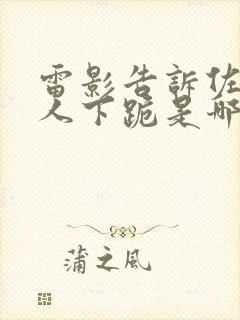 雷影告訴佐
人下跪是哪
蒲之风